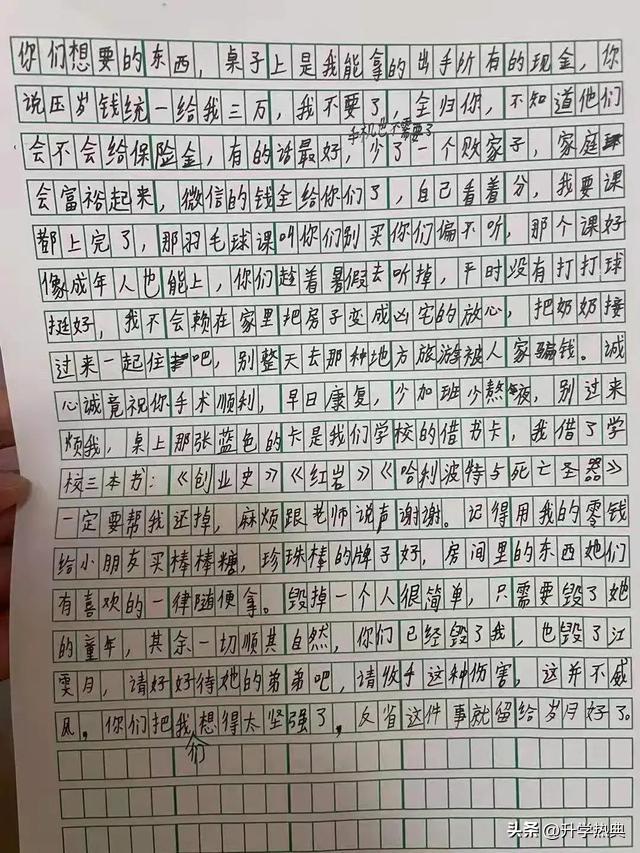 你们想要的东西，桌子上是我能拿的出手所有的现金，你
说压岁钱统一给我三万，我不要了，全归你，不知道他们
手机也不需要了
会不会给保险金，有的话最好，少了一个败家子，家庭
会富裕起来，微信的钱全给你们了，自己看着分，我要课
都上完了，那羽毛球课叫你们别买你们偏不听，那个课好
像成年人也能上，你们趁着暑假去听掉，平时没有打打球
挺好，我不会赖在家里把房子变成凶宅的放心，把奶奶接
过来一起住吧，别整天去那种地方旅游被人家骗钱。诚
心诚竟祝你手术顺利，早日康复，少加班少熬夜，别过来
烦我，桌上那张蓝色的卡是我们学校的借书卡，我借了学
校三本书：《创业史》《红岩》《哈利波特与死亡圣器》
一定要帮我还掉，麻烦跟老师说声谢谢。记得用我的零钱
给小朋友买棒棒糖，珍珠棒的牌子好，房间里的东西她们
有喜欢的一律随便拿。毁掉一个人很简单，只需要毁了她
的童年，其余一切顺其自然，你们已经毁了我，也毁了江
雯月，请好好待她的弟弟吧，请收手这种伤害，这并不威
风，你们把我们想得太坚强了，反省这件事就留给岁月好了。
头条 @升学热典